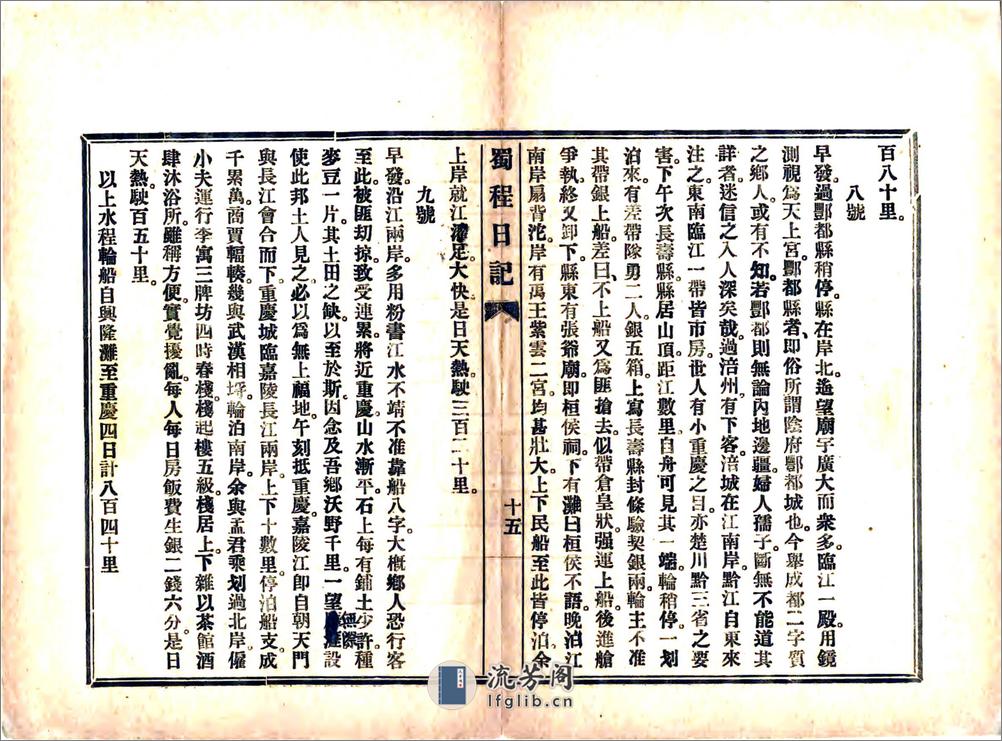 百八十里。
八號
早發過酆都縣稍停。縣在岸北。遙望廟宇廣大而衆多。臨江一殿。用鏡
測視。爲天上宮。酆都縣者、卽俗所謂陰府酆都城也。今舉成都二字質
之鄉人。或有不知。若酆都則無論內地邊疆。婦人孺子。斷無不能道其
詳者。迷信之入人深矣哉。過涪州。有下客。涪城在江南岸。黔江自東來
注之。東南臨江一帶皆市房。世人有小重慶之目。亦楚川黔三省之要
害。下午次長壽縣。縣居山頂。距江數里。自舟可見其一端。輪稍停。一划
泊來。有差帶隊勇二人。銀五箱。上寫長壽縣封條。驗契銀兩。輪主不准
其帶銀上船。差曰、不上船又爲匪搶去。似帶倉皇狀。强運上船。後進艙
爭執。終又卸下。縣東有張爺廟。卽桓侯祠。下有灘曰桓侯不語。晚泊江
南岸扇背沱。岸有禹王紫雲二宮。均甚壯大。上下民船至此皆停泊。余
蜀程日記
十五
上岸就江濯足。大快。是日天熱。駛三百二十里。
九號
早發。沿江兩岸。多用粉書江水不靖不准靠船八字。大槪鄉人恐行客
至此被匪刧掠。致受連累。將近重慶。山水漸平。石上每有鋪土少許。種
麥豆一片。其土田之缺。以至於斯。因念及吾鄉沃野千里。一望無際。設
使此邦土人見之。必以爲無上福地。午刻抵重慶。嘉陵江卽自朝天門
與長江會合而下。重慶城臨嘉陵長江兩岸。上下十數里。停泊船支。成
千累萬。商賈輻輳。幾與武漢相埒。輪泊南岸。余與孟君乘划過北岸。僱
小夫運行李。寓三牌坊四時春棧。棧起樓五級。棧居上。下雜以茶館酒
肆沐浴所。雖稱方便。實覺擾亂。每人每日房飯費生銀二錢六分。是日
天熱。駛百五十里。
以上水程輪船自興隆灘至重慶四日計八百四十里
流芳阁
lfglib.cn